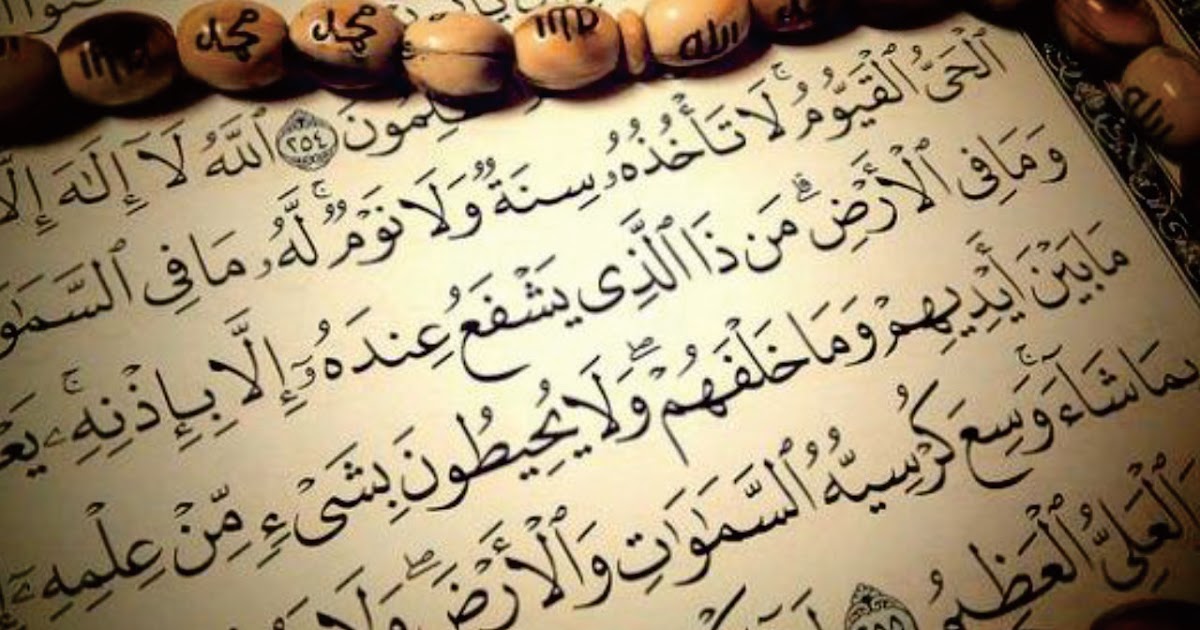 محمد محمد الله
ـلِمُونَ ٢٥٤ ٱللَّهُ لَآ إِلَٰهَ إِلَّا
ٱلْحَىُّ ٱلْقَيُّومُ ۚ لَا تَأْخُذُهُۥ سِنَةٌ وَلَا نَوْمٌ ۚ لَّهُۥ مَا فِى ٱلسَّمَٰوَ
وَمَا فِى ٱلْأَرْضِ ۗ مَن ذَا ٱلَّذِى يَشْفَعُ عِندَهُۥٓ إِلَّا بِإِذْنِهِۦ ۚ يَعْـ
مَا بَيْنَ أَيْدِيهِمْ وَمَا خَلْفَهُمْ ۖ وَلَا يُحِيطُونَ بِشَىْءٍ مِّنْ عِلْمِهِۦٓ
بِمَا شَآءَ ۚ وَسِعَ كُرْسِيُّهُ ٱلسَّمَٰوَٰتِ وَٱلْأَرْضَ ۖ وَلَا
ٱلْعَلِىُّ ٱلْعَظِيمُ ٢٥٥
الله